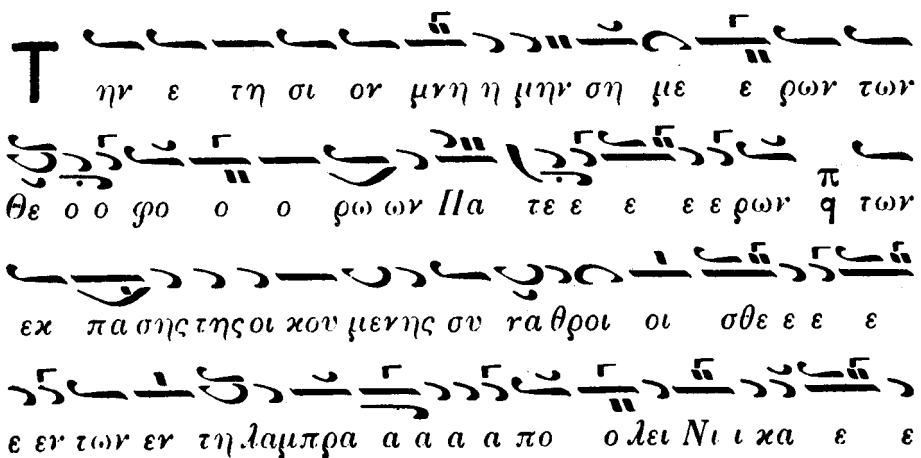 Τ ην ε τη σι ον μνη η μην ση με ε ρων των
Θε ο ο φο ο ο ρω ων Πα τε ε ε ε ε ρων π q των
εκ πα σης της οι κου μενης συ να θροι οι σθε ε ε ε
ε εν των εν τη λαμπρα α α α α πο ο λει Νι ι κα ε ε